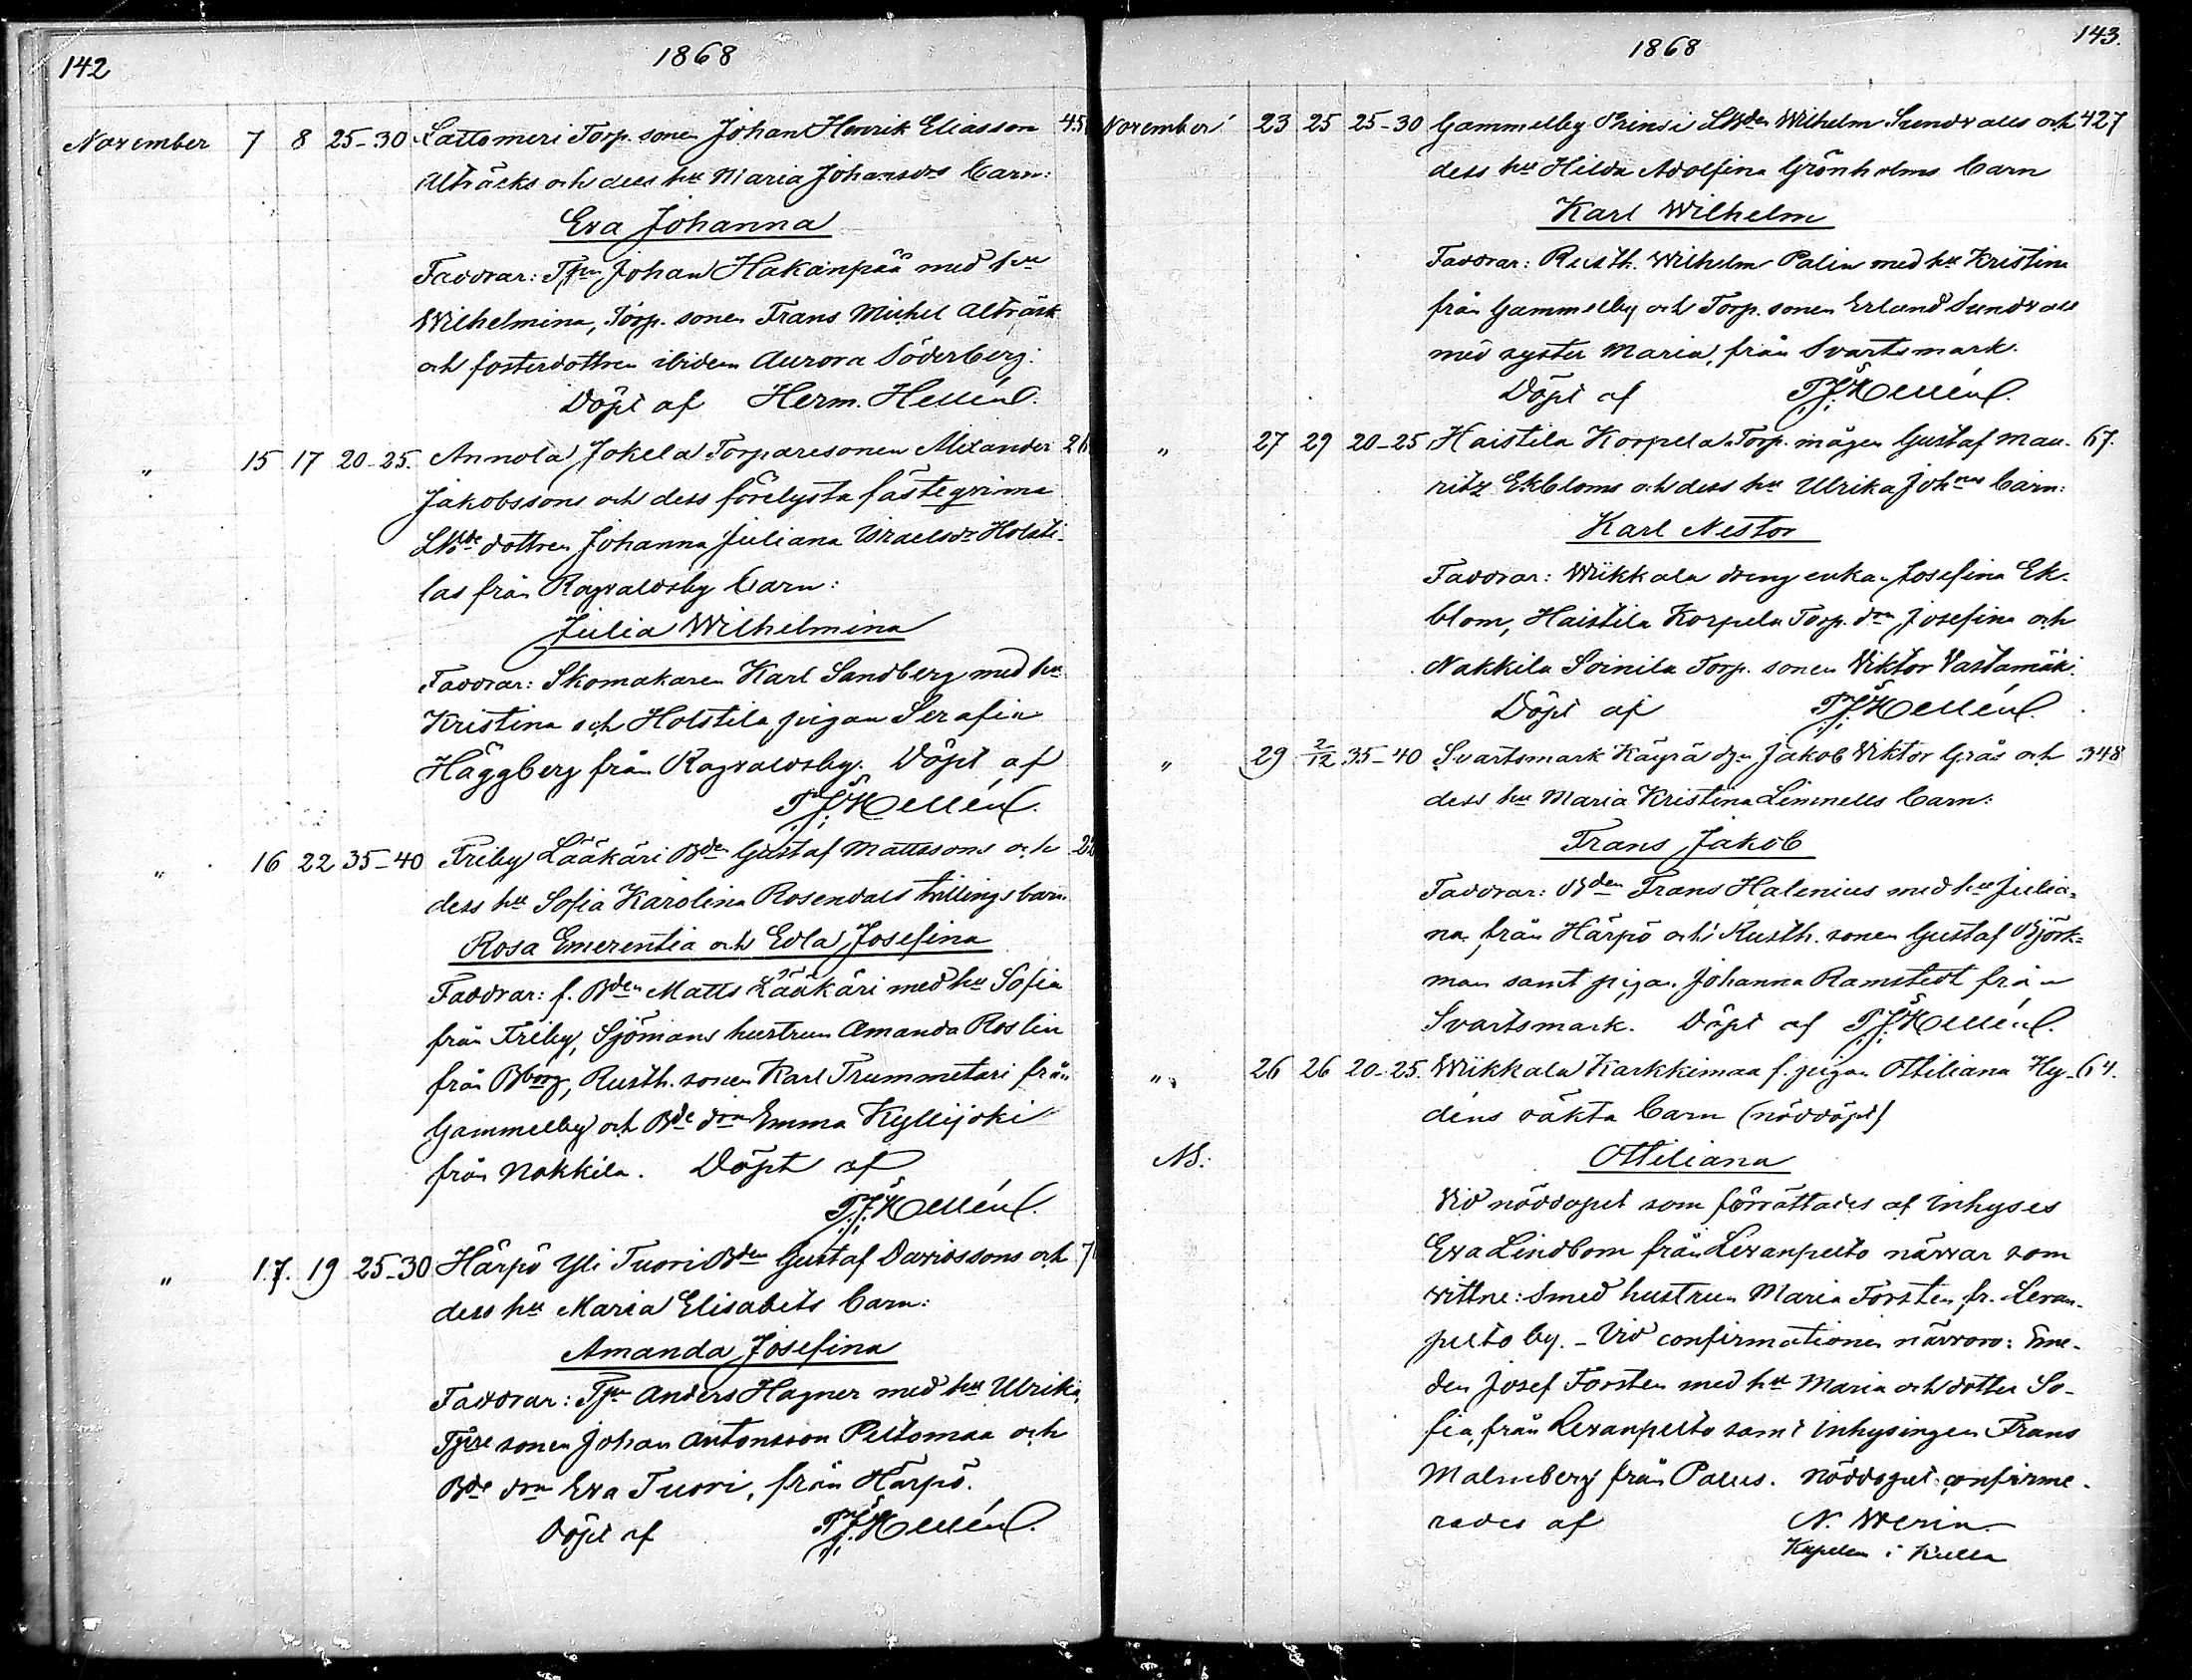 142
1868
November 7 8 25-30 Lattomeri Torp. sonen Johan Henrik Eliasson 45
Alträsks och dess hu Maria Johansdrs barn:
Eva Johanna
Faddrar: Tpn Johan Hakanpää med hu
Wilhelmina, Torp. sonen Frans Mickel Alträsk
och fosterdottren ibidem Aurora Söderberg:
Döpt af Herm. Hellén.
" 15 17 20-25. Annola Jokela Torparesonen Alexander 26
Jakobssons och dess förelysta fästeqvinna
dottren Johanna Juliana Israelsdr Holsti-
las från Ragvaldsby barn:
Julia Wilhelmina
Faddrar: Skomakaren Karl Sandberg med hu
Kristina och Holstila pigan Serafin
Häggberg från Ragvaldsby. Döpt af
Hellén.
" 16 22 35-40 Friby Lääkäri Bden Gustaf Mattssons och
dess hu Sofia Karolina Rosendals tvillingsbarn
Rosa Emerentia och Edla Josefina
Faddrar: f. Bden Matts Lääkäri med hu Sofia
från Friby, Sjömans hustrun Amanda Roslin
från Bborg, Rusth. sonen Karl Trummetari från
Gammelby och Bde drn Emma Kyllijoki
från Nakkila. Döpt af
Hellén.
" 17. 19 25-30 Härpö Yli Tuori Bden Gustaf Davidssons och 7
dess hu Maria Elisabets barn:
Amanda Josefina
Faddrar: Tpn Anders Hagner med hu Ulrika,
Tpre sonen Johan Antonsson Peltomaa och
Bde drn Eva Tuori, från Härpö.
Döpt af Hellén.
143.
1868
November 23 25 25-30 Gammelby Prinsi Wilhelm Sundvalls och 427
dess hu Hilda Adolfina Grönholms barn
Karl Wilhelm
Faddrar: Rusth. Wilhelm Palin med hu Kristina
från Gammelby och Torp. sonen Erland Sundvall
med syster Maria, från Svartsmark.
Döpt af Hellén.
" 27 29 20-25 Haistila Korpela Torp. mågen Gustaf Mau- 67.
ritz Ekbloms och dess hu Ulrika Johns barn:
Karl Nestor
Faddrar: Wiikkala dreng enkan Josefina Ek-
blom, Haistila Korpela Torp. drn Josefina och
Nakkila Soinila Torp. sonen Viktor Vastamäki.
Döpt af Hellén.
" 29 2/12 35-40 Svartsmark Käyrä dgn Jakob Viktor Grås och 348
dess hu Maria Kristina Limnells barn:
Frans Jakob
Faddrar: Bden Frans Halenius med hu Julia-
na från Härpö och Rusth. sonen Gustaf Björk-
man samt pigan Johanna Ramstedt från
Svartsmark. Döpt af Hellén.
" 26 26 20-25. Wiikkala Karkkimaa f. pigan Ottiliana Hy- 64.
déns oäkta barn (nöddöpt)
NB: Ottiliana
Vid nöddopet som förrättades af inhyses
Eva Lindbom från Levanpelto närvar som
vittne: Smed hustrun Maria Forsten fr. Levan-
pelto by. - Vid confirmationen närvoro: Sme-
den Josef Forsten med hu Maria och dotter So-
fia, från Levanpelto samt inhysingen Frans
Malmberg från Palus. Nöddopet confirme-
rades af N. Werin.
Kapellan i Kulla